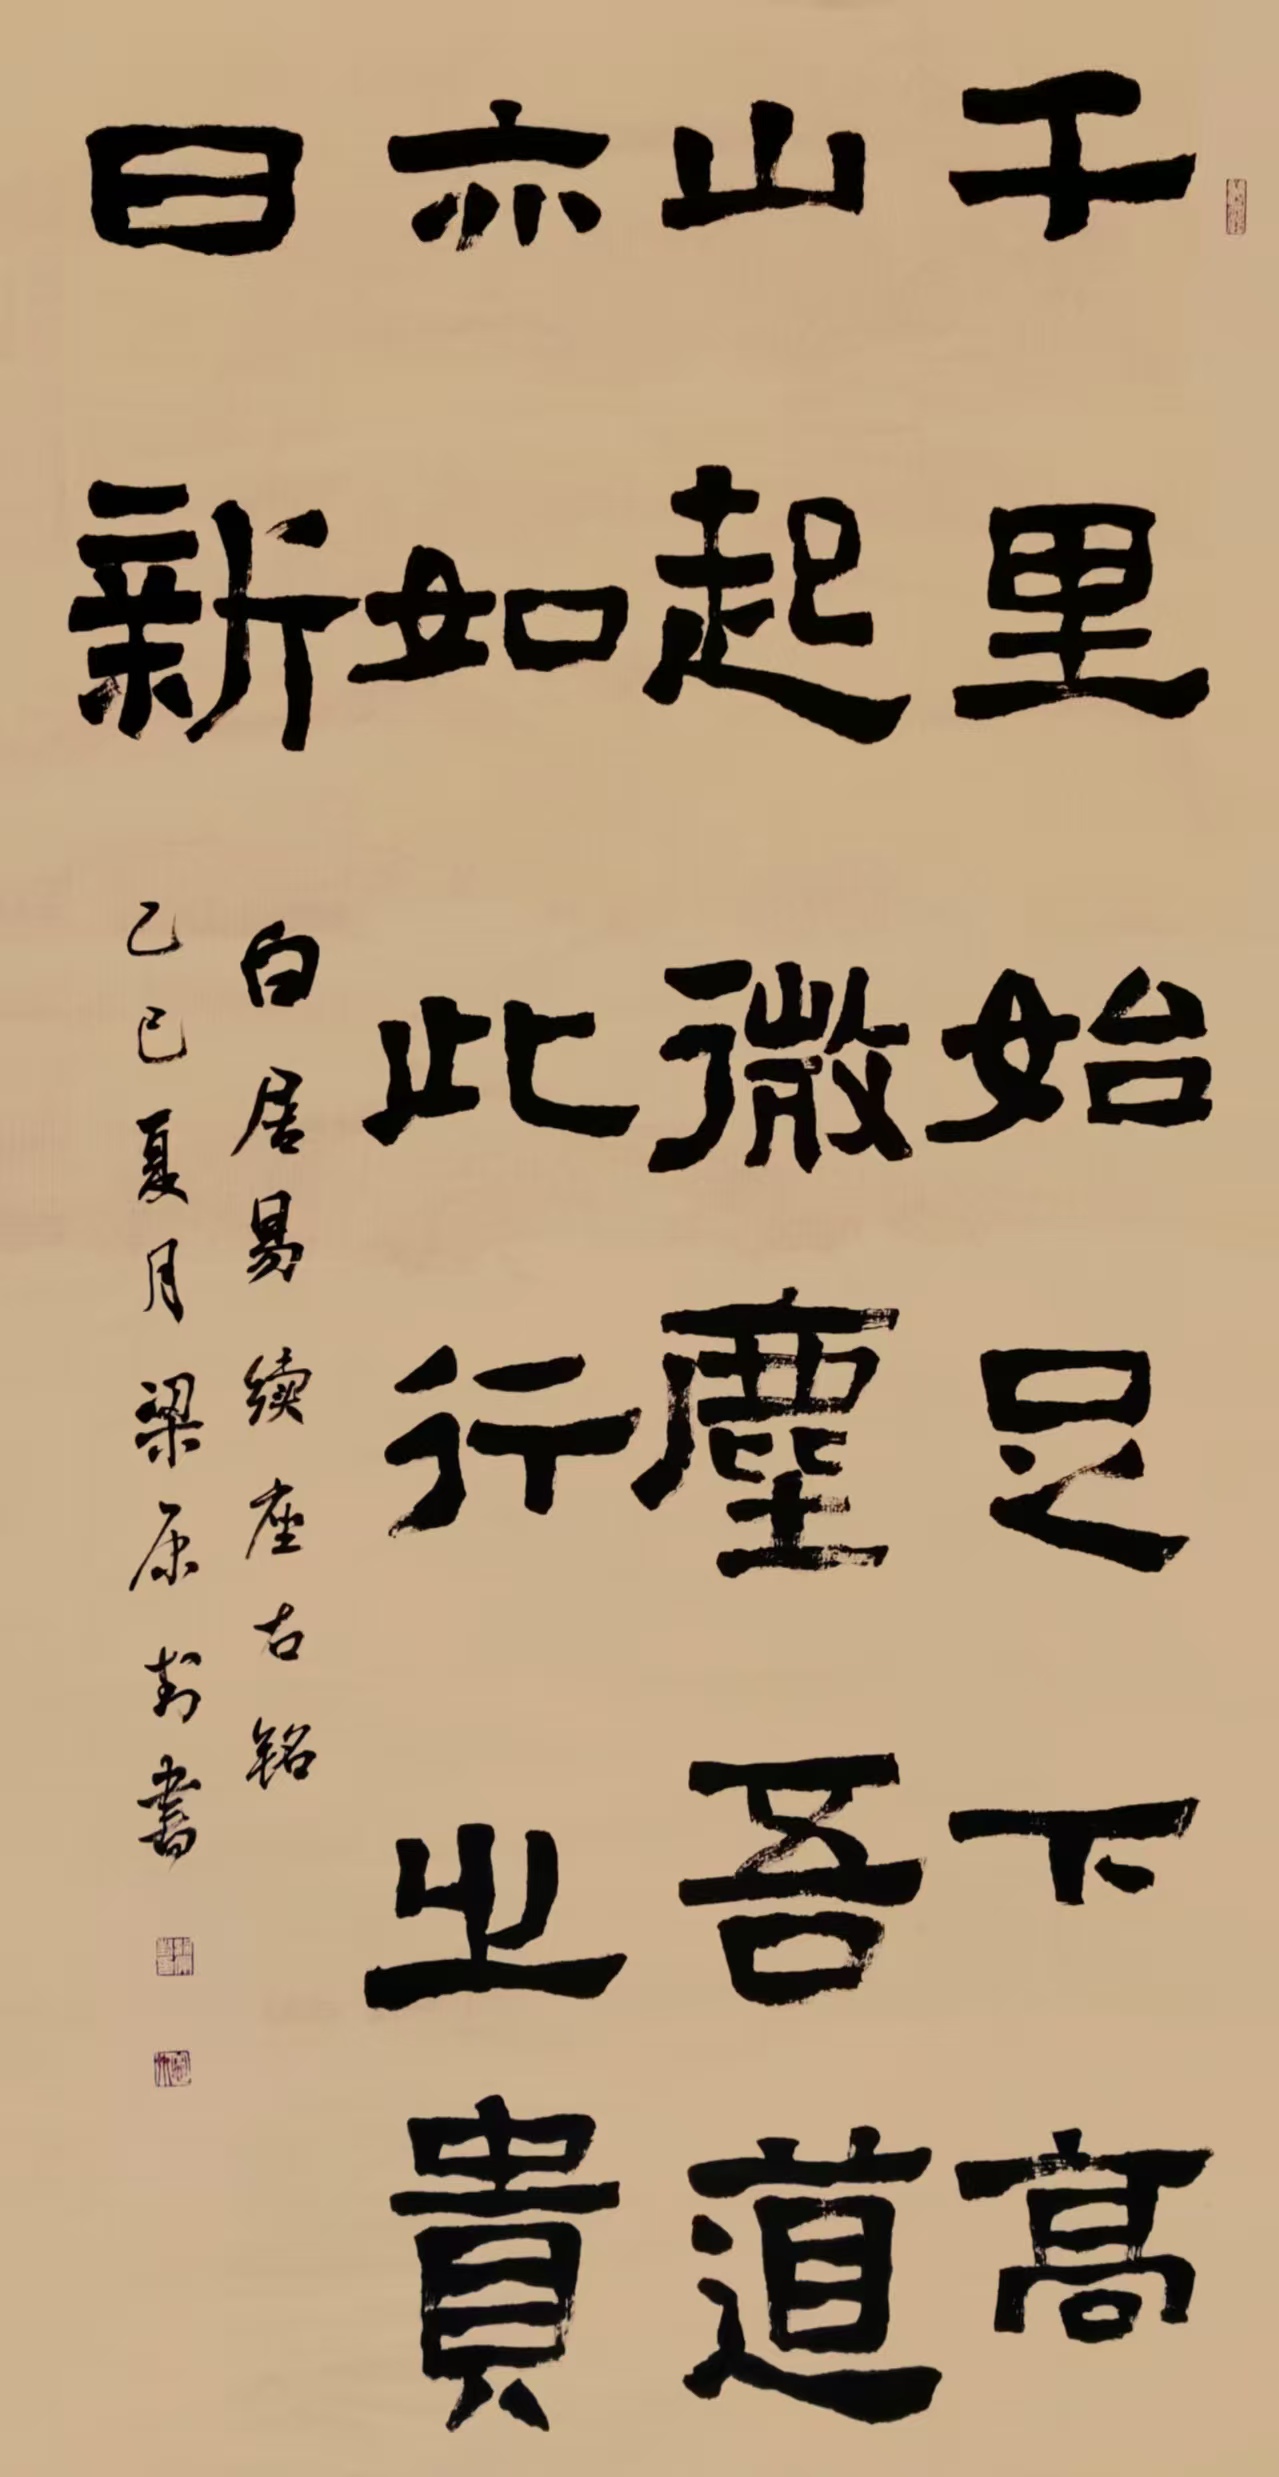 千里始足下高
山起微塵吾道
亦如此行之貴
日新
白居易续座右铭
乙巳夏月梁原封書